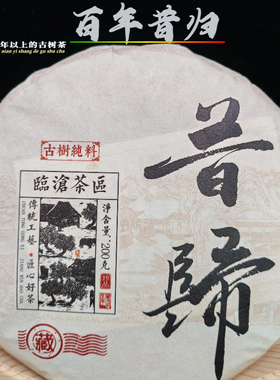 百年昔归
年以上的古树茶
nian yi shang de gu shu cha
古樹純料
臨滄茶區
傳統工藝·匠心好茶
CHUAN TONG GONG YI
JIANG XIN HAO CHA
淨含量：200克
昔歸
藏